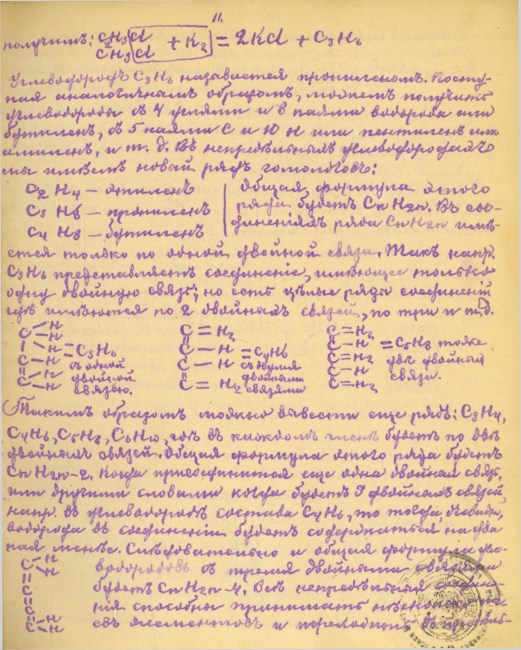 11.
получимъ: CH3Cl
CH3Cl + K2 = 2KCl + C3H6
Углеводородъ C3H6 называется пропиленомъ. Посту-
пая аналогичнымъ образомъ, можемъ получить
углеводороды съ 4 углями и 8 паями водорода или
бутиленъ, съ 5 паями C и 10 H или пентиленъ или
амиленъ, и т. д. Въ непредѣльныхъ углеводородахъ
мы имѣемъ новый рядъ гомологовъ:
C2 H4 — этиленъ
C3 H6 — пропиленъ
C4 H8 — бутиленъ
Общая формула этого
ряда будетъ Cn H2n. Въ сое-
диненіяхъ ряда Cn H2n имѣ-
ется только по одной двойной связи. Такъ напр.
C3H6 представляетъ соединеніе, имѣющее только
одну двойную связь; но есть цѣлые ряды соединеній
гдѣ имѣются по 2 двойныхъ связей, по три и т.д.
= C3H6
съ одной
двойной
связью.
= C4H6
съ двумя
двойными
связями
= C5H8 тоже
двѣ двойныхъ
связи.
Такимъ образомъ можно вывести еще рядъ: C3H4,
C4H6, C5H8, C6H10, гдѣ въ каждомъ членѣ будетъ по двѣ
двойныхъ связей. Общая формула этого ряда будетъ
Cn H2n-2. Когда прибавится еще одна двойная связь,
или другими словами когда будетъ 3 двойныхъ связей,
напр. въ углеводородѣ состава C6H8, то тогда
водорода въ соединеніи будетъ содержаться на два
пая менѣе. Слѣдовательно и общая формула угле-
водородовъ съ тремя двойными связями
будетъ Cn H2n-4. Всѣ непредѣльныя соедине-
нія способны принимать
евъ элементовъ и переходить въ